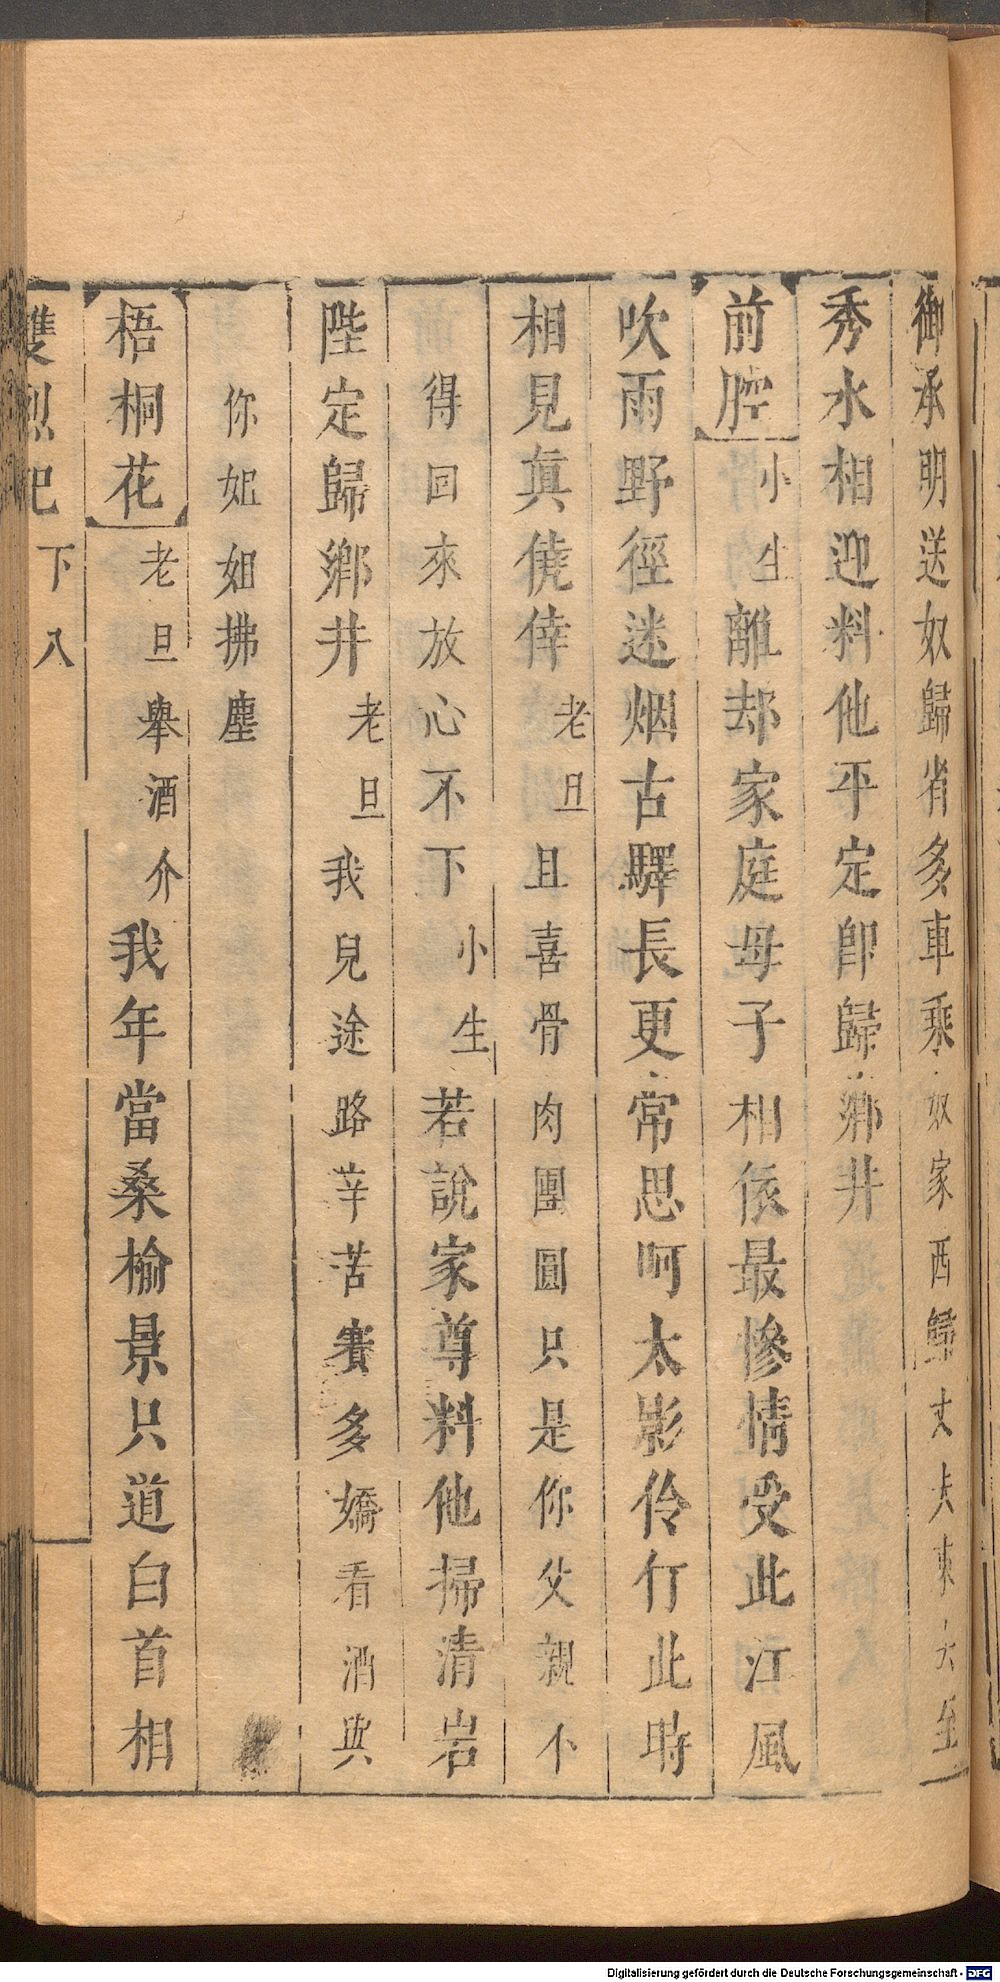 御承明送奴歸省多車乘奴家西歸丈夫東去至
秀水相迎料他平定即歸鄉井
前腔小生離却家庭母子相依最慘情受此江風
吹雨野徑迷烟古驛長更常思呵太影伶仃此時
相見真僥倖老旦且喜骨肉團圓只是你父親不
得回來放心不下小生若說家尊料他掃清岩
陛定歸鄉井老旦我兒途路辛苦賽多嬌看酒與
你姐姐拂塵
梧桐花老旦舉酒介我年當桑榆景只道白首相
雙烈記下入
Digitalisierung gefördert durch die Deutsche Forschungsgemeinschaft - DFG